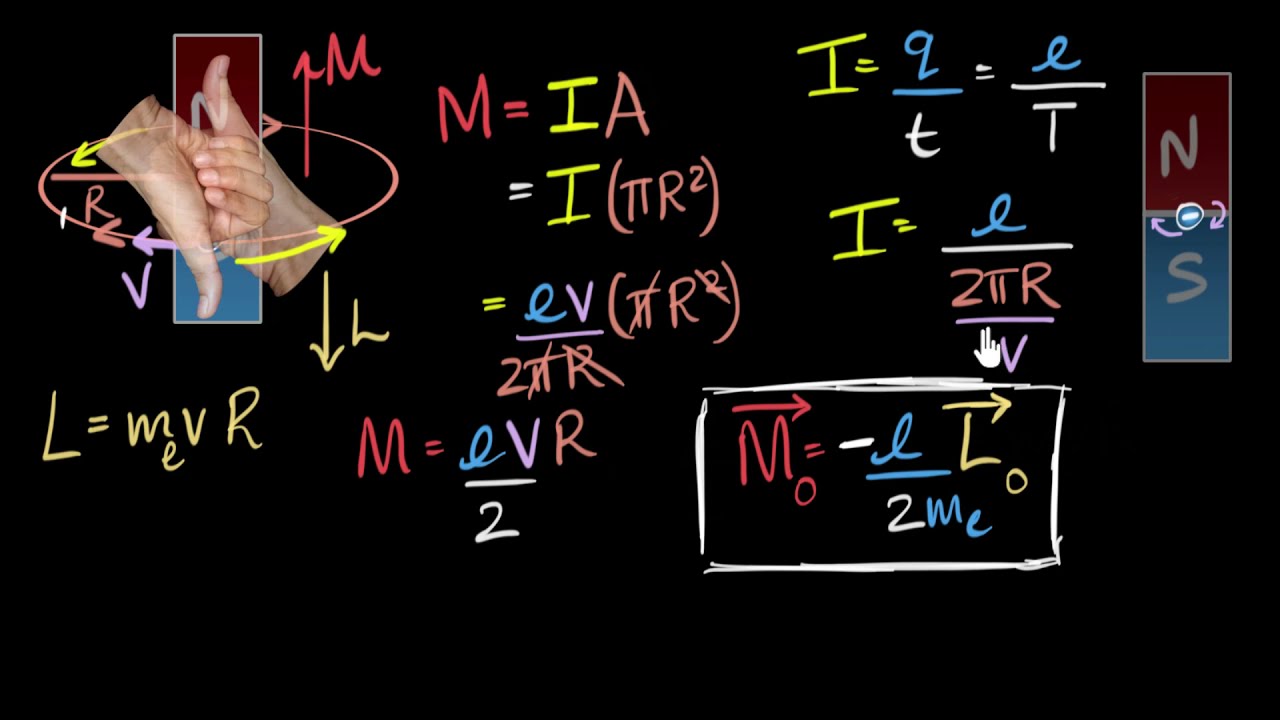 N
M
R
V
L
L = mₑvR
M = IA
= I(πR²)
= ev/2πR (πR²)
M = eVR/2
I = q/t = e/T
I = e/(2πR/V)
M⃗₀ = -e/2mₑ L⃗₀
N
-
S